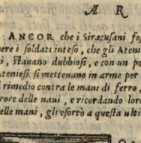 A R
ANCOR che i Siracusani
pere i soldati inteso, che gli Ateni
, stauano dubbiosi, e con un po
teniesi si mettenano in arme per
rimedio contra le mani di ferro,
prore delle naui, e ricordando lor
delle mani, gli esortò a questa ulti